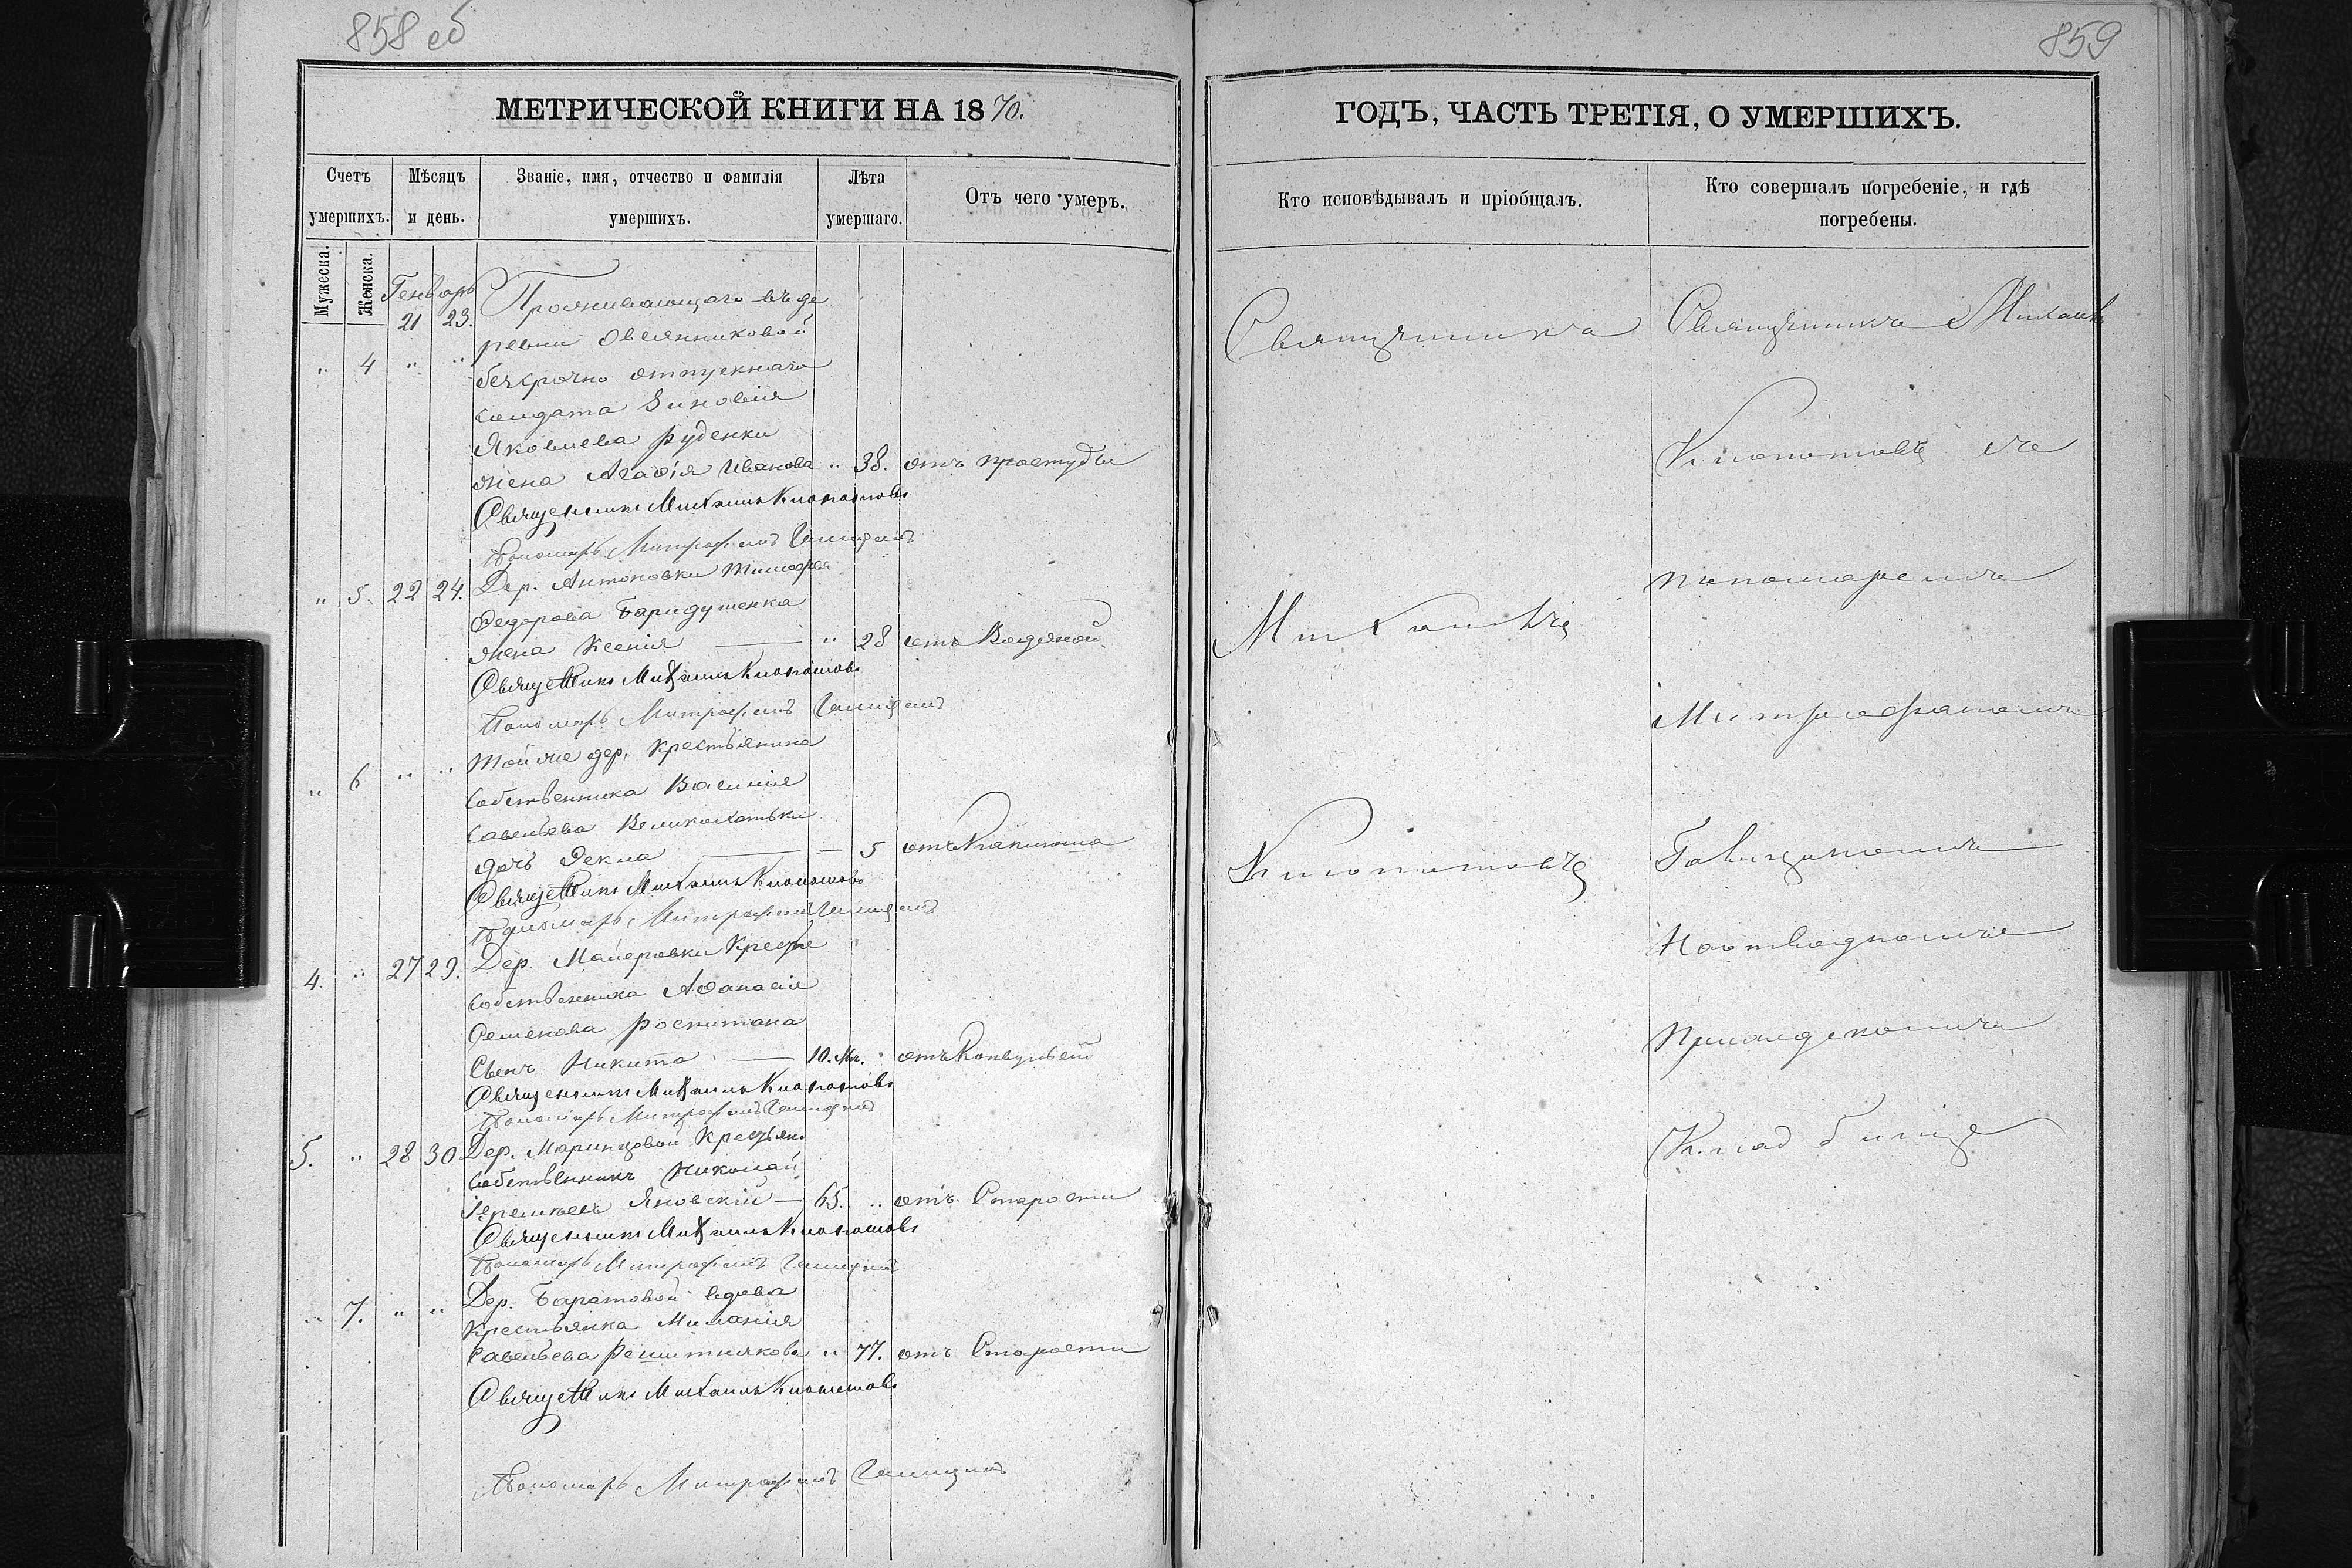 858 об
859
МЕТРИЧЕСКОЙ КНИГИ НА 1870.
ГОДЪ, ЧАСТЬ ТРЕТІЯ, О УМЕРШИХЪ.
Счетъ умершихъ.
Мѣсяцъ и день.
Званіе, имя, отчество и фамилія умершихъ.
Лѣта умершаго.
Отъ чего умеръ.
Кто исповѣдывалъ и пріобщалъ.
Кто совершалъ погребеніе, и гдѣ погребены.
Мужеска.
Женска.
Генварь
21 23.
Проживающаго въ де
ревни Овсянниковой
" 4 " "
безсрочно отпускнаго
солдата Зиновія
Яковлева Руденки
жена Агафія Иванова " 38. отъ простуды
Священникъ Михаилъ Клопотовъ
Пономарь Митрофанъ
" 5. 22 24. Дер. Антоновки Тимофея
Федорова
жена Ксенія — " 28 отъ Водяной
Священникъ Михаилъ Клопотовъ
Пономарь Митрофанъ
" 6 " " Той же дер. Крестьянина
Собственника Василія
Савельева
дочь Фекла — — 5 отъ
Священникъ Михаилъ Клопотовъ
Пономарь Митрофанъ
4. " 27 29. Дер. Майеровки Крест.
Собственника Афанасія
Семенова
Сынъ Никита — 10. м. " отъ Конвульсій
Священникъ Михаилъ Клопотовъ
Пономарь Митрофанъ
5. " 28 30 Дер. Маринцовой Крестьян.
Собственникъ Николай
Іеремѣевъ Яновскій — 65. " отъ Старости
Священникъ Михаилъ Клопотовъ
Пономарь Митрофанъ
" 7. " " Дер. Баратовой вдова
Крестьянка Миланія
Савельева Решитнякова " 77. отъ Старости
Священникъ Михаилъ Клопотовъ
Пономарь Митрофанъ
Священникъ
Михаилъ
Клопотовъ
Священникъ Михаилъ
Клопотовъ съ
пономаремъ
Митрофаномъ
На
Приходскомъ
Кладбищѣ